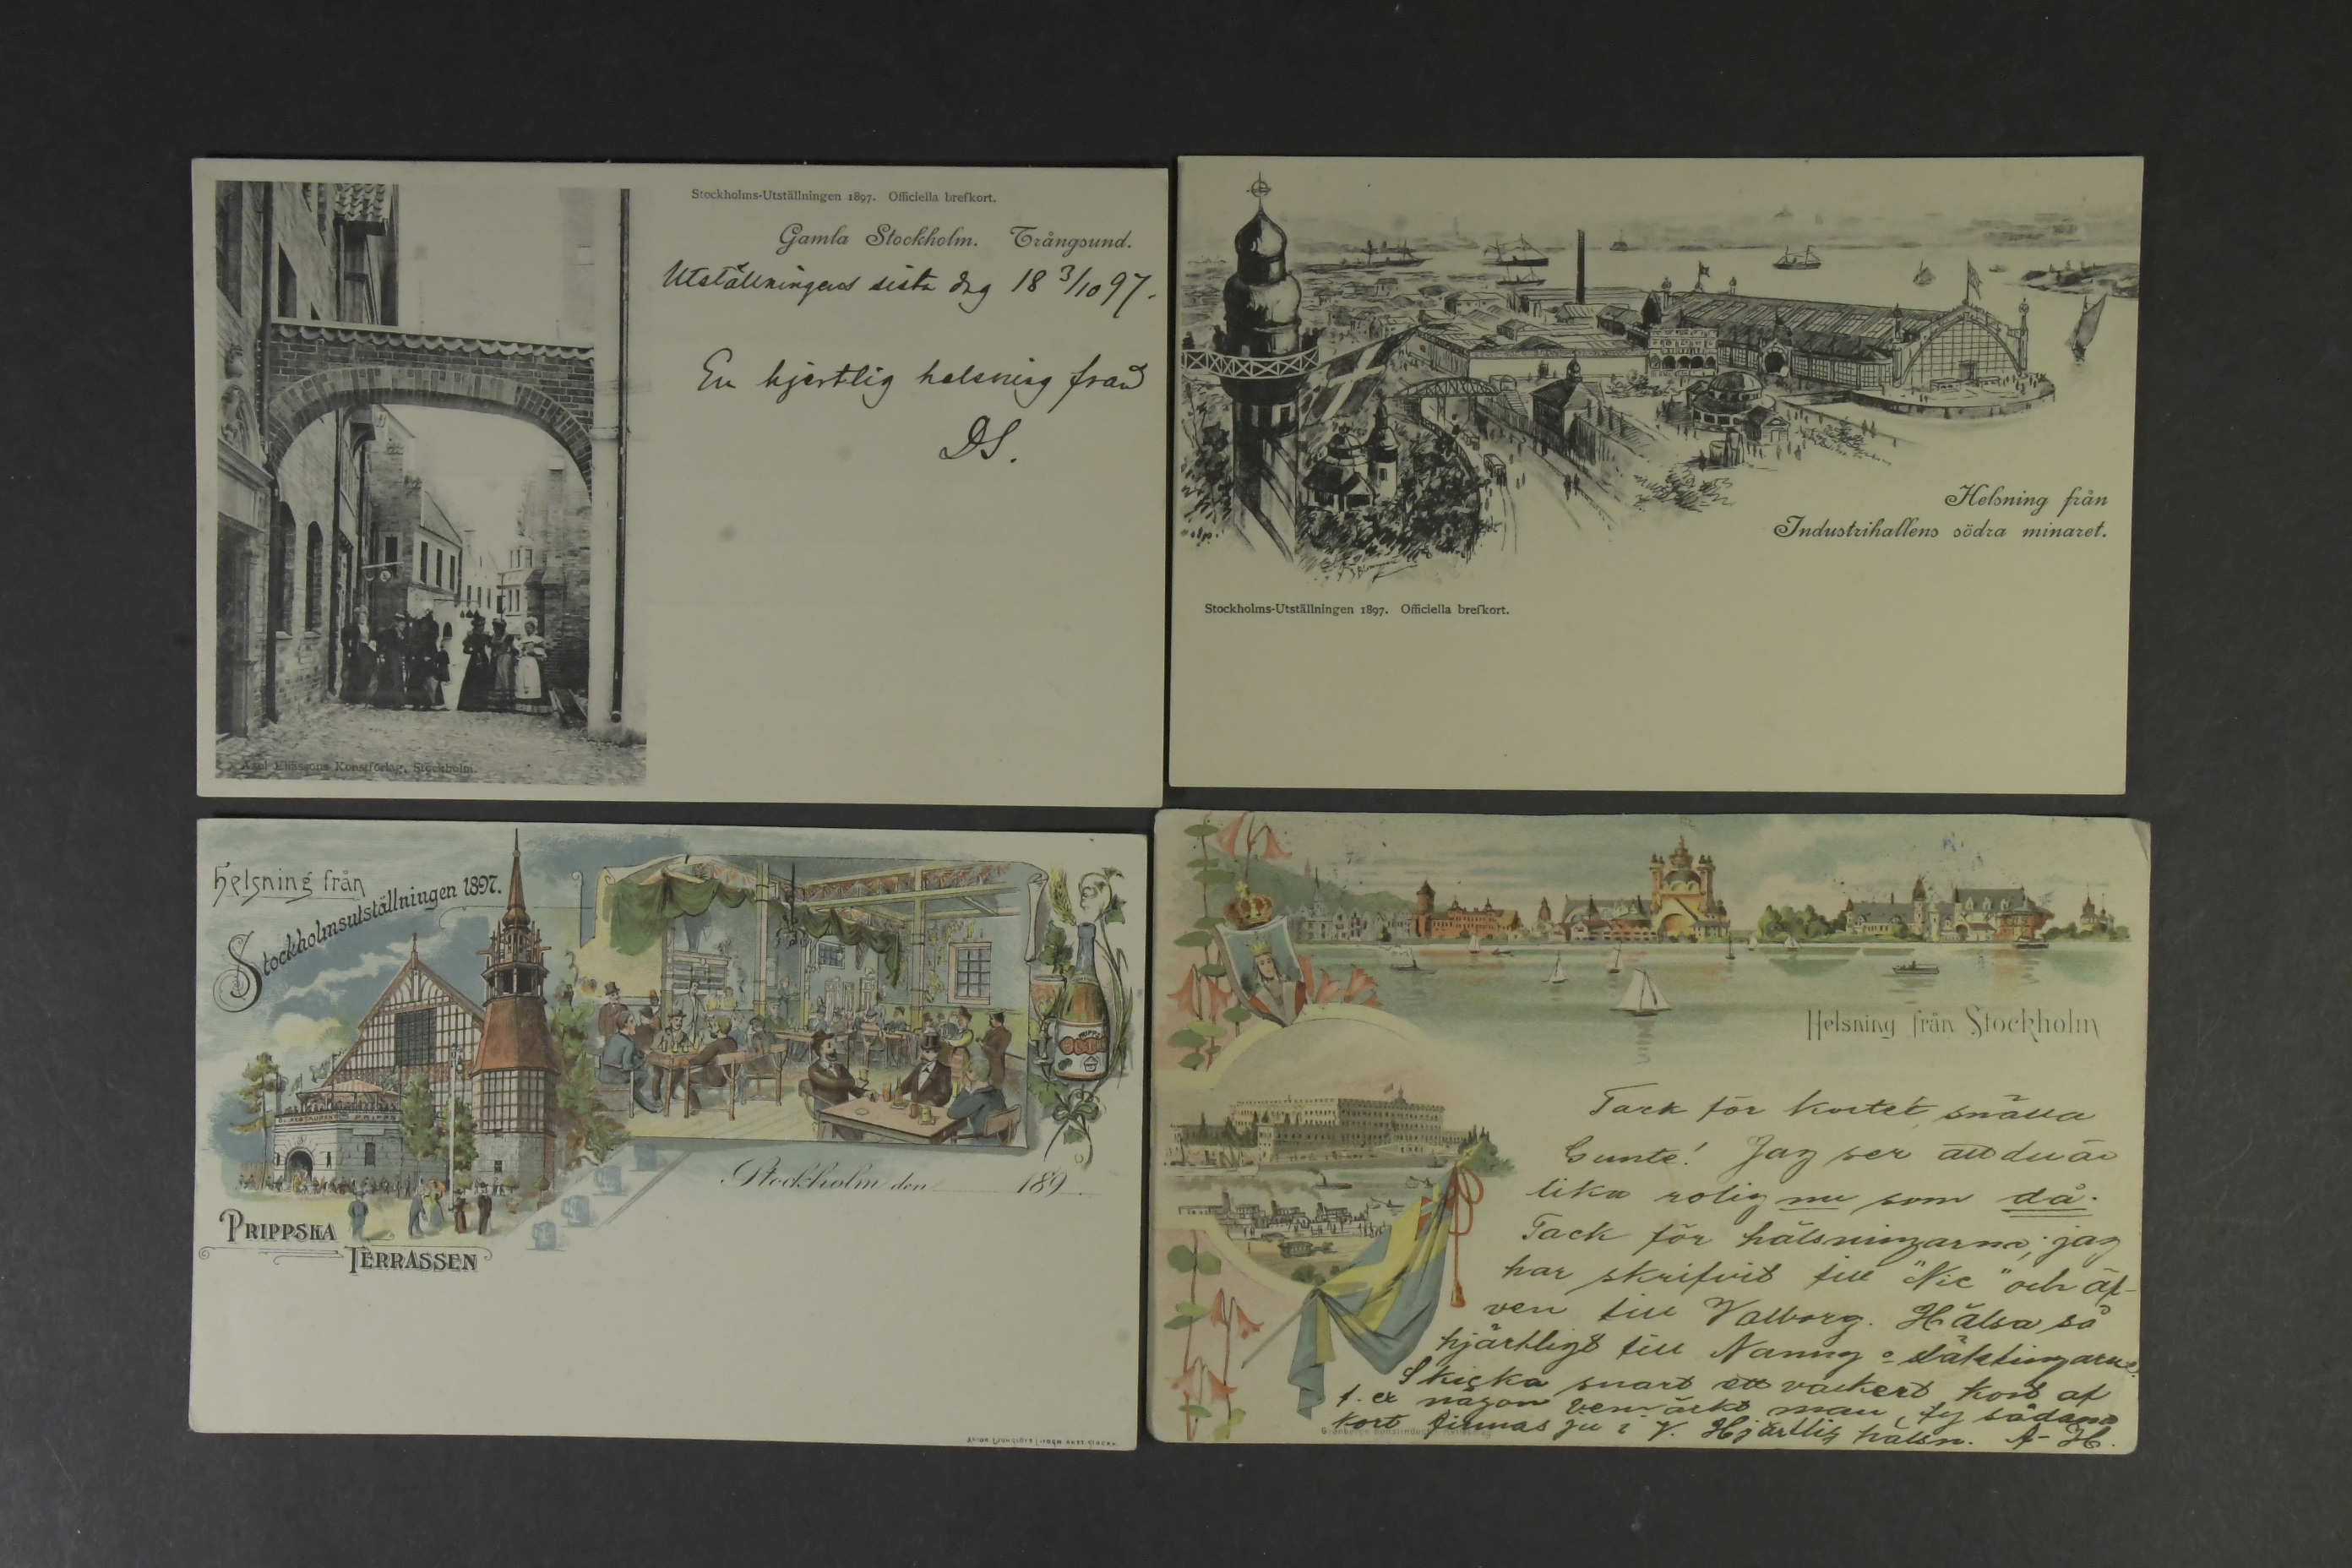 Stockholms-Utställningen 1897. Officiella brefkort.
Gamla Stockholm. Trångsund.
Utställningens sista dag 18 3/10 97.
En hjertlig helsning från
DS.
Axel Eliassons Konstförlag, Stockholm.
Helsning från
Industrihallens södra minaret.
Stockholms-Utställningen 1897. Officiella brefkort.
Helsning från
Stockholmsutställningen 1897.
PRIPPS
Stockholm den 189
PRIPPSKA
TERRASSEN
Helsning från Stockholm
Tack för kortet, snälla
Gunte! Jag ser att du är
lika rolig nu som då.
Tack för hälsningarna, jag
har skrifvit till "Nic" och äf-
ven till Valborg. Hälsa så
hjärtligt till Nanny o släktingarne.
Skicka snart ett vackert kort af
t. ex någon Venersborg man, ty sådana
kort finnas ju i V. Hjärtlig hälsn. A-H.